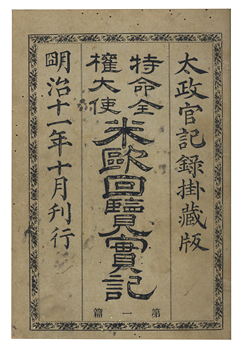 太政官記録掛藏版
特命全
權大使
米歐回覽實記
第一篇
明治十一年十月刊行